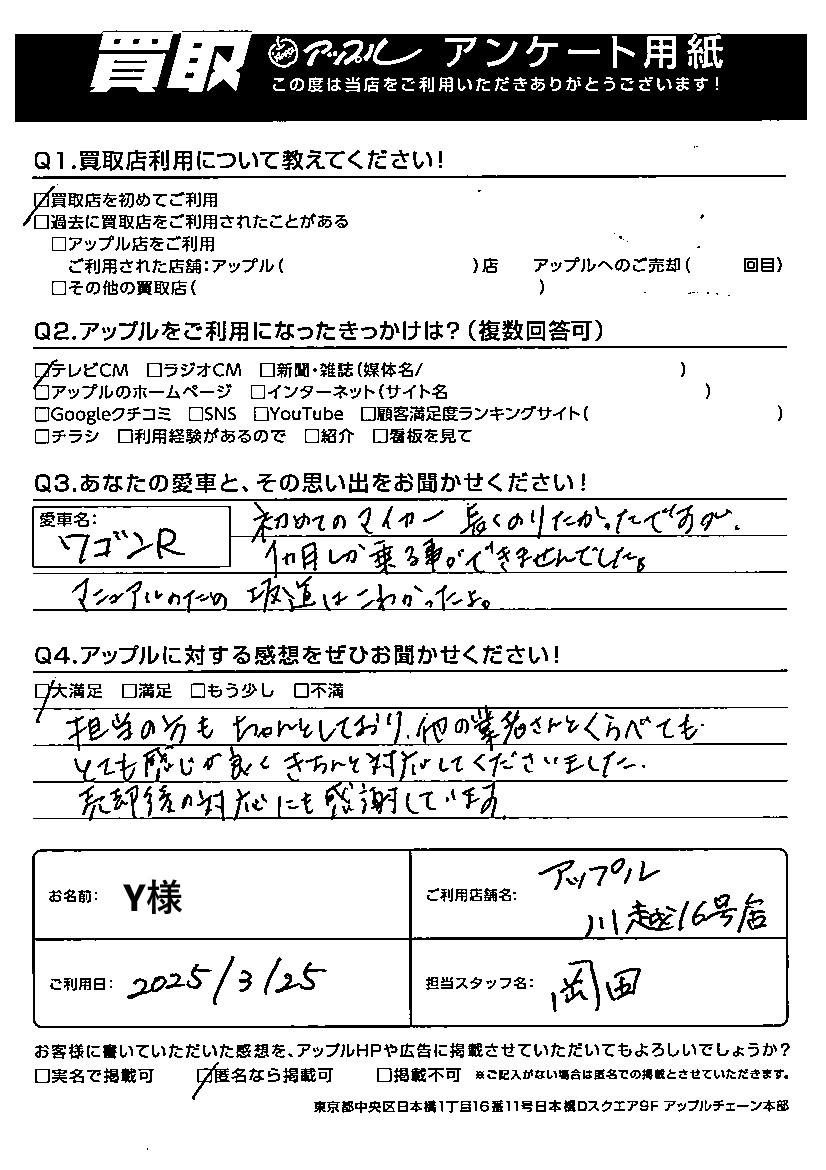 買取 アップル アンケート用紙
この度は当店をご利用いただきありがとうございます!
Q1.買取店利用について教えてください!
☑買取店を初めてご利用
□過去に買取店をご利用されたことがある
□アップル店をご利用
ご利用された店舗:アップル( )店 アップルへのご売却( 回目)
□その他の買取店( )
Q2.アップルをご利用になったきっかけは?(複数回答可)
☑テレビCM □ラジオCM □新聞・雑誌(媒体名/ )
□アップルのホームページ □インターネット(サイト名 )
□Googleクチコミ □SNS □YouTube □顧客満足度ランキングサイト( )
□チラシ □利用経験があるので □紹介 □看板を見て
Q3.あなたの愛車と、その思い出をお聞かせください!
愛車名:
ワゴンR
初めてのマイカー 長くのりたかったですが、
1ヶ月しか乗る事ができませんでした。
マニュアルのための 坂道はこわかったよ。
Q4.アップルに対する感想をぜひお聞かせください!
☑大満足 □満足 □もう少し □不満
担当の方も ちゃんとしており、他の業者さんとくらべても
とても感じが良く きちんと対応してくださいました。
売却後の対応にも感謝しています
お名前: Y様
ご利用店舗名: アップル
川越16号店
ご利用日: 2025/3/25
担当スタッフ名: 岡田
お客様に書いていただいた感想を、アップルHPや広告に掲載させていただいてもよろしいでしょうか?
□実名で掲載可 ☑匿名なら掲載可 □掲載不可 ※ご記入がない場合は匿名での掲載とさせていただきます。
東京都中央区日本橋1丁目16番11号日本橋Dスクエア9F アップルチェーン本部